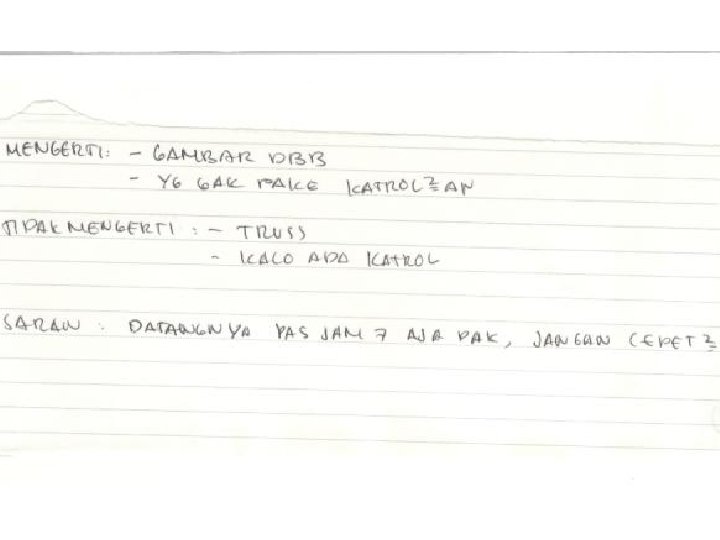 MENGERTI: - GAMBAR DBB
- YG GAK PAKE KATROL2AN
TIDAK MENGERTI : - TRUSS
- KALO ADA KATROL
SARAN : DATANGNYA PAS JAM 7 AJA PAK, JANGAN CEPET2